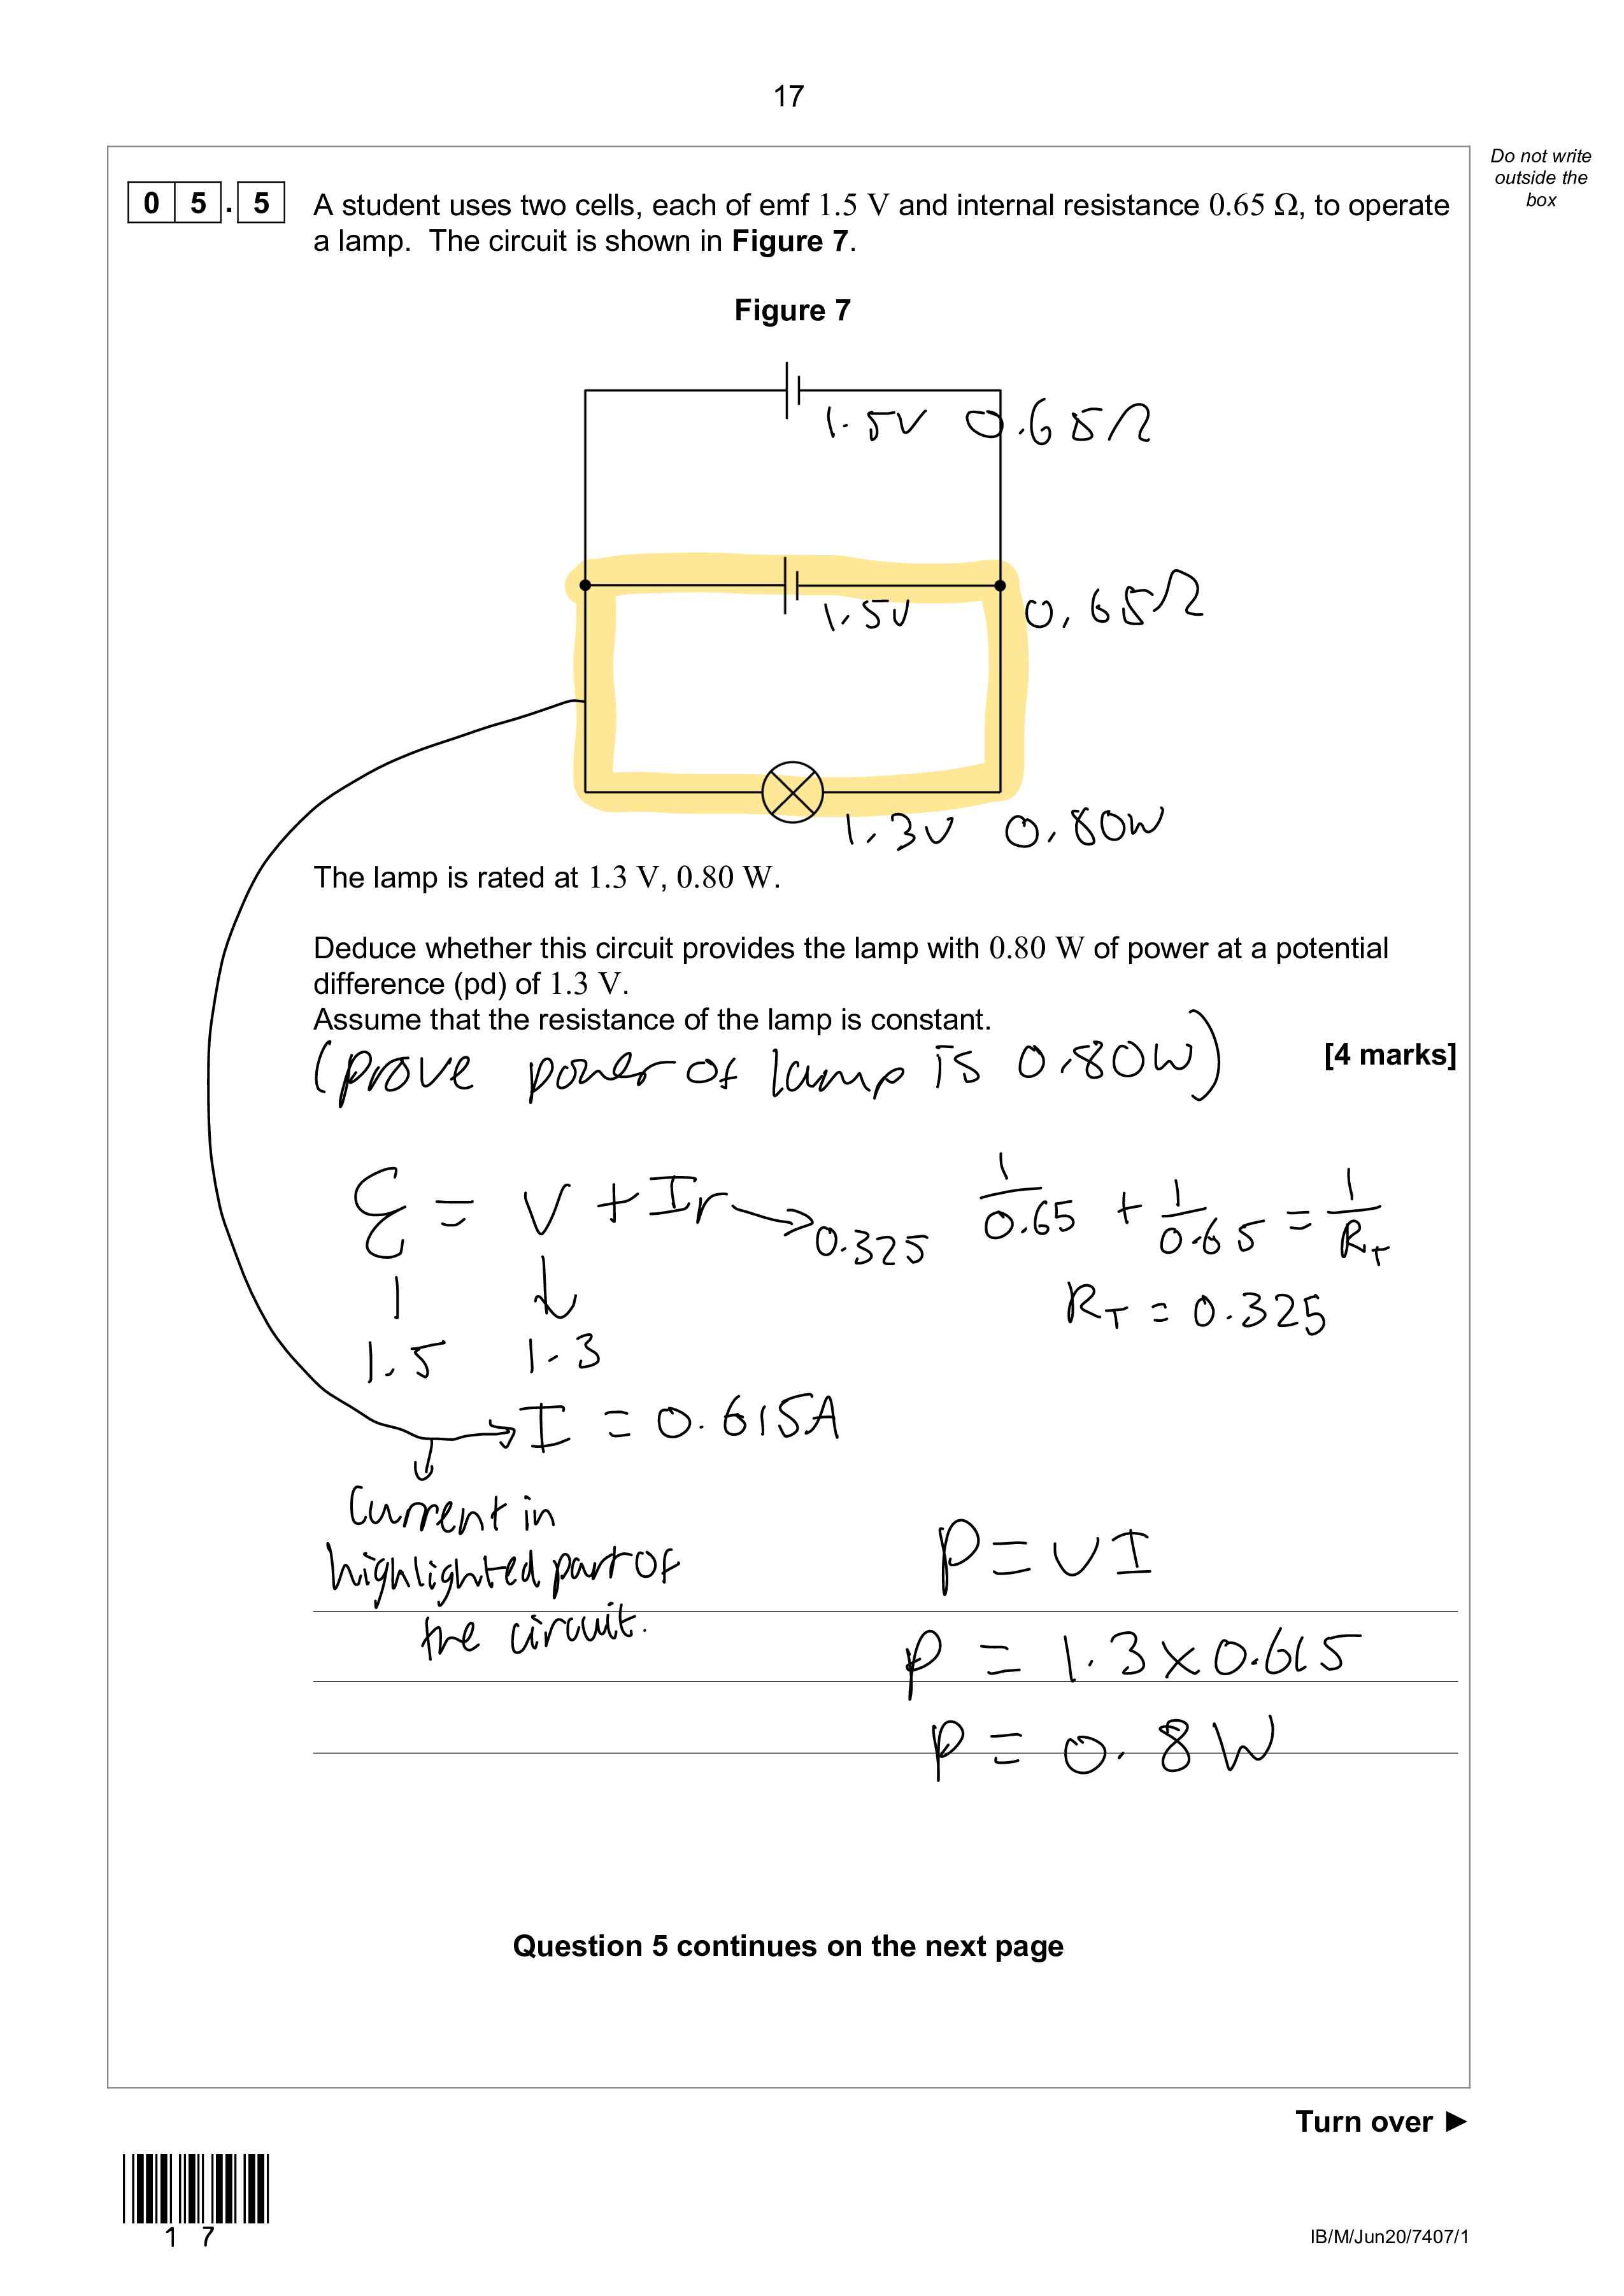 17
Do not write
outside the
box
0 5 . 5
A student uses two cells, each of emf 1.5 V and internal resistance 0.65 Ω, to operate
a lamp. The circuit is shown in Figure 7.
Figure 7
1.5V 0.65Ω
1.5V 0.65Ω
1.3V 0.80W
The lamp is rated at 1.3 V, 0.80 W.
Deduce whether this circuit provides the lamp with 0.80 W of power at a potential
difference (pd) of 1.3 V.
Assume that the resistance of the lamp is constant.
[4 marks]
(prove power of lamp is 0.80W)
ℰ = V + Ir → 0.325
1/0.65 + 1/0.65 = 1/R_T
R_T = 0.325
1.5 1.3
I = 0.615A
Current in
highlighted part of
the circuit.
P = VI
P = 1.3 × 0.615
P = 0.8 W
Question 5 continues on the next page
Turn over ►
1 7
IB/M/Jun20/7407/1